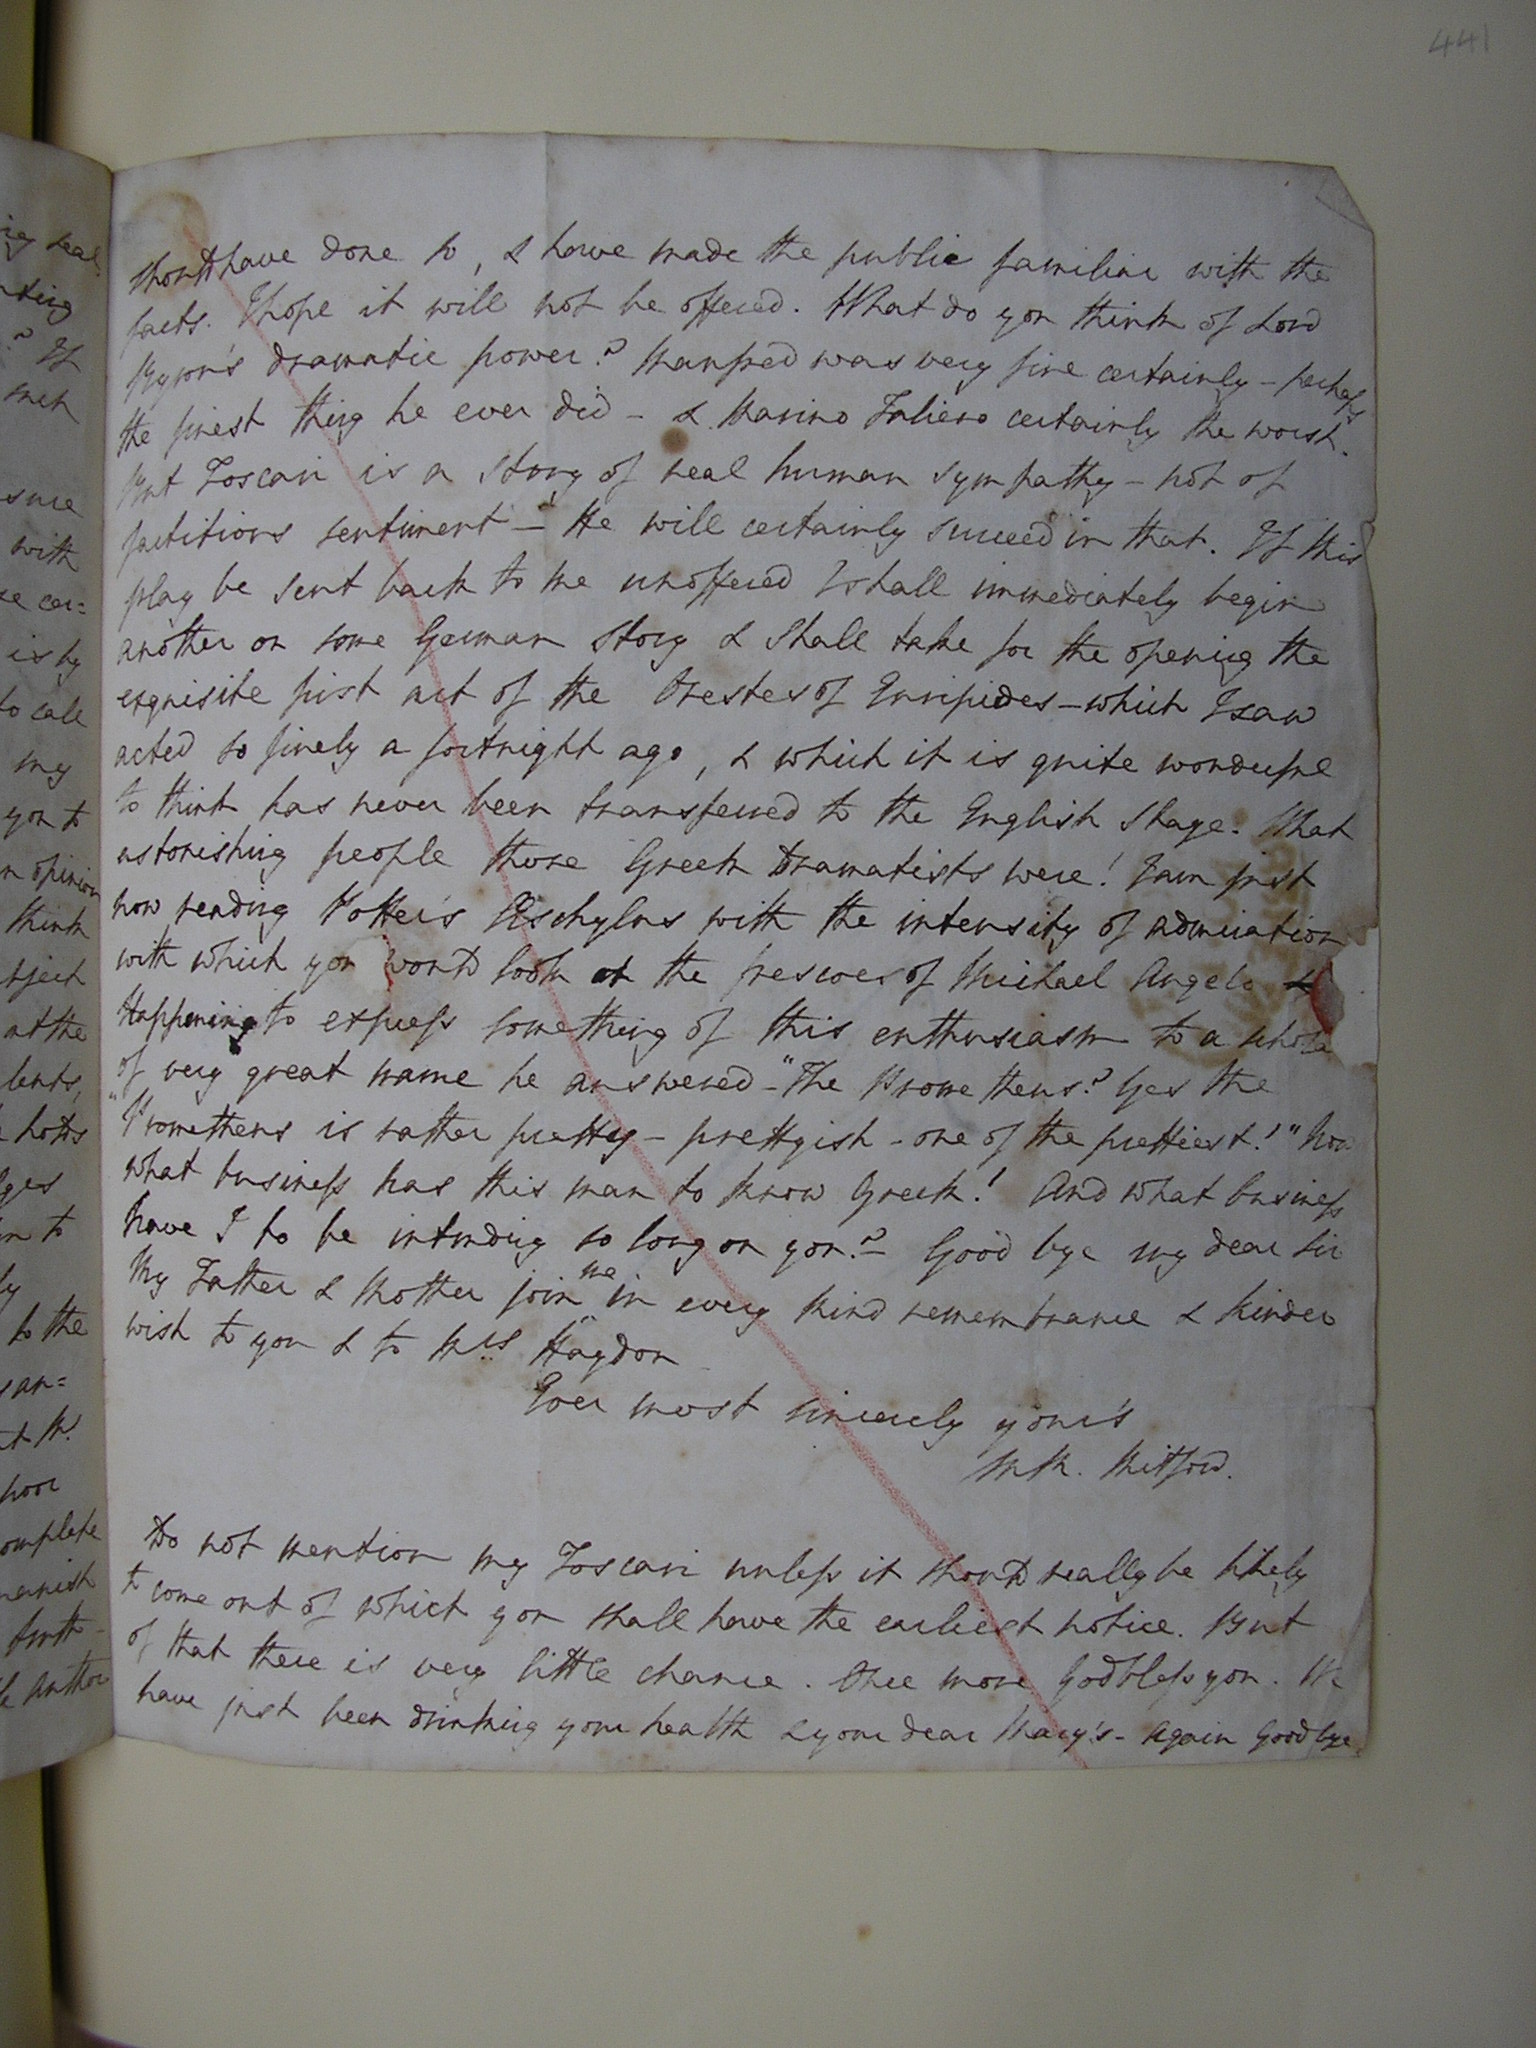 441
should have done so, & have made the public familiar with the
facts. I hope it will not be offered. What do you think of Lord
Byron's dramatic power? Manfred was very fine certainly - perhaps
the finest thing he ever did - & Marino Faliero certainly the worst.
But Foscari is a story of real human sympathy - not of
factitious sentiment - He will certainly succeed in that. If this
play be sent back to me unoffered I shall immediately begin
another on some German story & shall take for the opening the
exquisite first act of the Orestes of Euripides - which I saw
acted so finely a fortnight ago, & which it is quite wonderful
to think has never been transferred to the English Stage. What
astonishing people those Greek Dramatists were! I am just
now reading Potter's Æschylus with the intensity of admiration
with which you would look at the frescoes of Michael Angelo &
Happening to express something of this enthusiasm to a
of very great name he answered - "The Prometheus? Yes the
"Prometheus is rather pretty - prettyish - one of the prettiest!" Now
what business has this man to know Greek! And what business
have I to be intruding so long on you? - Good bye my dear Sir
My Father & Mother join me in every kind remembrance & kinder
wish to you & to Mrs. Haydon
Ever most sincerely your's
M.R. Mitford.
Do not mention my Foscari unless it should really be likely
to come out of which you shall have the earliest notice. But
of that there is very little chance. Once more God bless you. We
have just been drinking your health & your dear Mary's - Again Good bye.